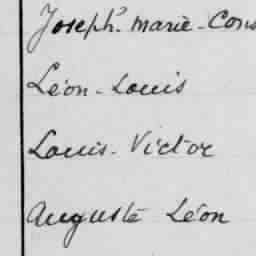 Joseph. Marie - Cons
Léon - Louis
Louis - Victor
Auguste Léon